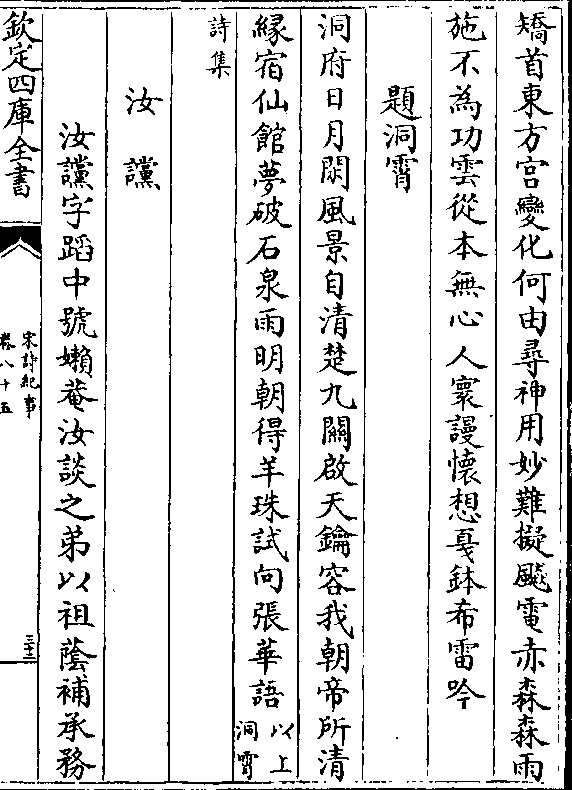 矯首東方宫變化何由尋神用妙難擬飈電赤森森雨
施不為功雲從本無心人寰謾懷想戞鉢希雷吟
題洞霄
洞府日月閑風景自清楚九關啟天鑰容我朝帝所清
緣宿仙館夢破石泉雨明朝得羊珠試向張華語以上洞霄
詩集
汝讜
汝讜字蹈中號嬾菴汝談之弟以祖蔭補承務
欽定四庫全書
宋詩紀事
卷八十五
三十三